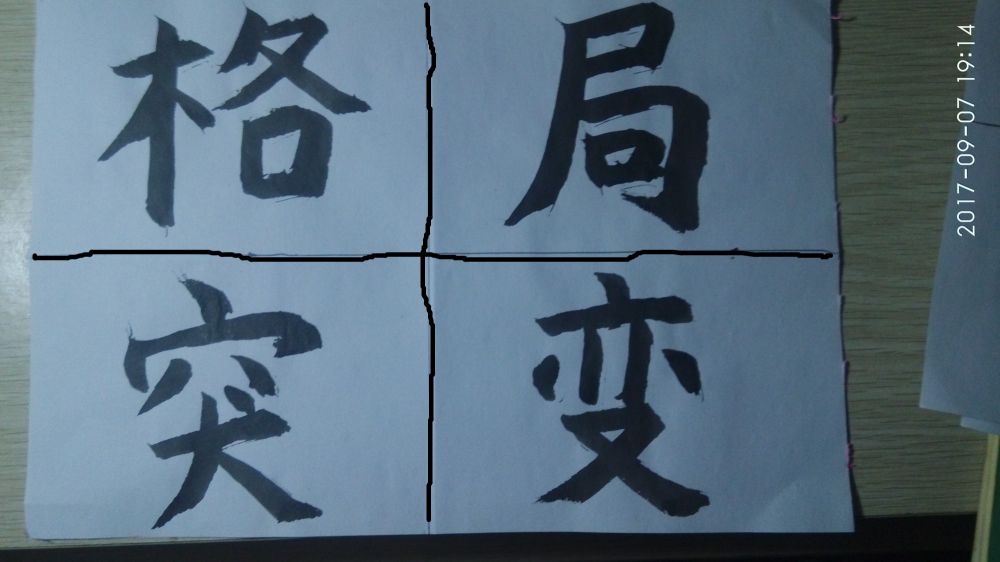 格局
突变
2017-09-07 19:14